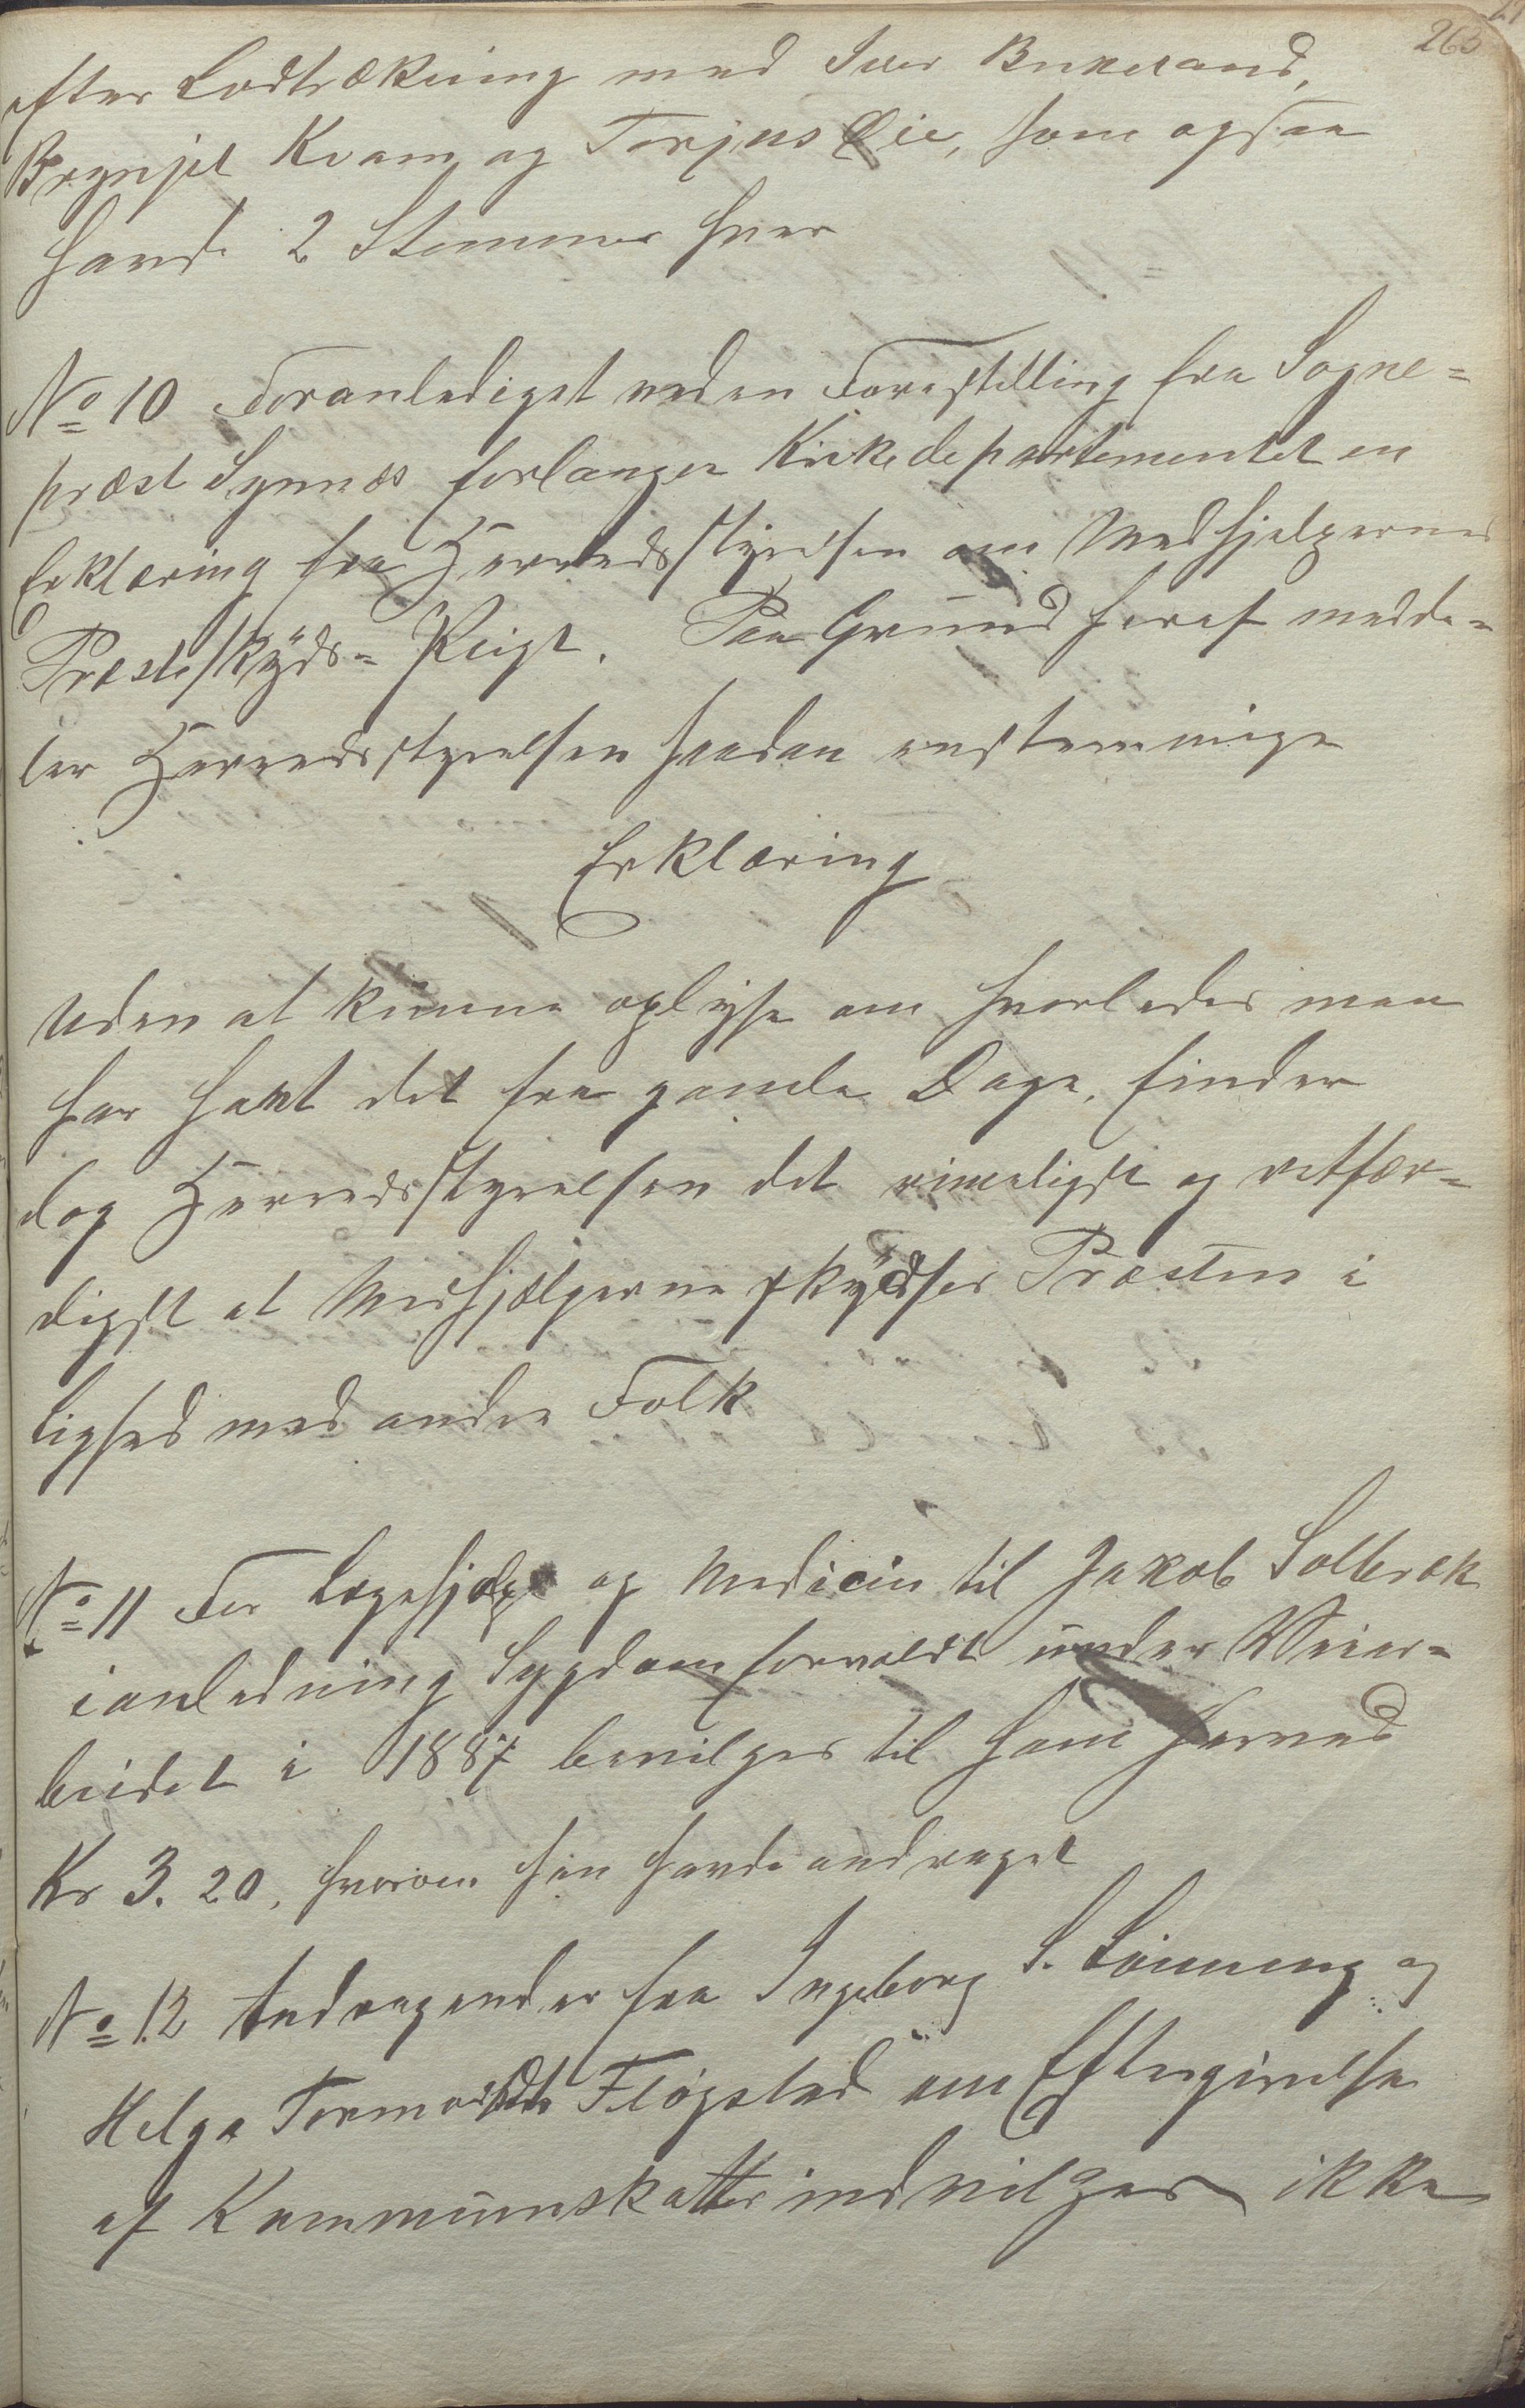 263
efter Lodtrækning med Iver Birkeland,
Brynjel Kvam og Torjus Lie, som ogsaa
havde 2 Stemmer hver
No 10 Foranlediget ved en Forestilling fra Sogne=
præst Synnæs forlanger Kirkedepartementet en
Erklæring fra Herredsstyrelsen om Medhjelpernes
Præsteskyds=Pligt. Paa Grund heraf medde=
ler Herredsstyrelsen saadan enstemmige
Erklæring
Uden at kunne oplyse om hvorledes man
har havt det fra gamle Dage, finder
dog Herredsstyrelsen det rimeligst og retfær=
digst at Medhjælperne skydser Præsten i
Lighed med andre Folk
No 11 For Lægehjælp og Medicin til Jakob Solbræk
i anledning Sygdom forvoldt under Veiar=
beidet i 1887 bevilges til ham herved
Kr 3.20, hvorom han havde andraget
No 12 Andragender fra Ingeborg S. Lönning og
Helga Tormodsdtr Fløgstad om Eftergivelse
af Kommuneskatter indvilges ikke